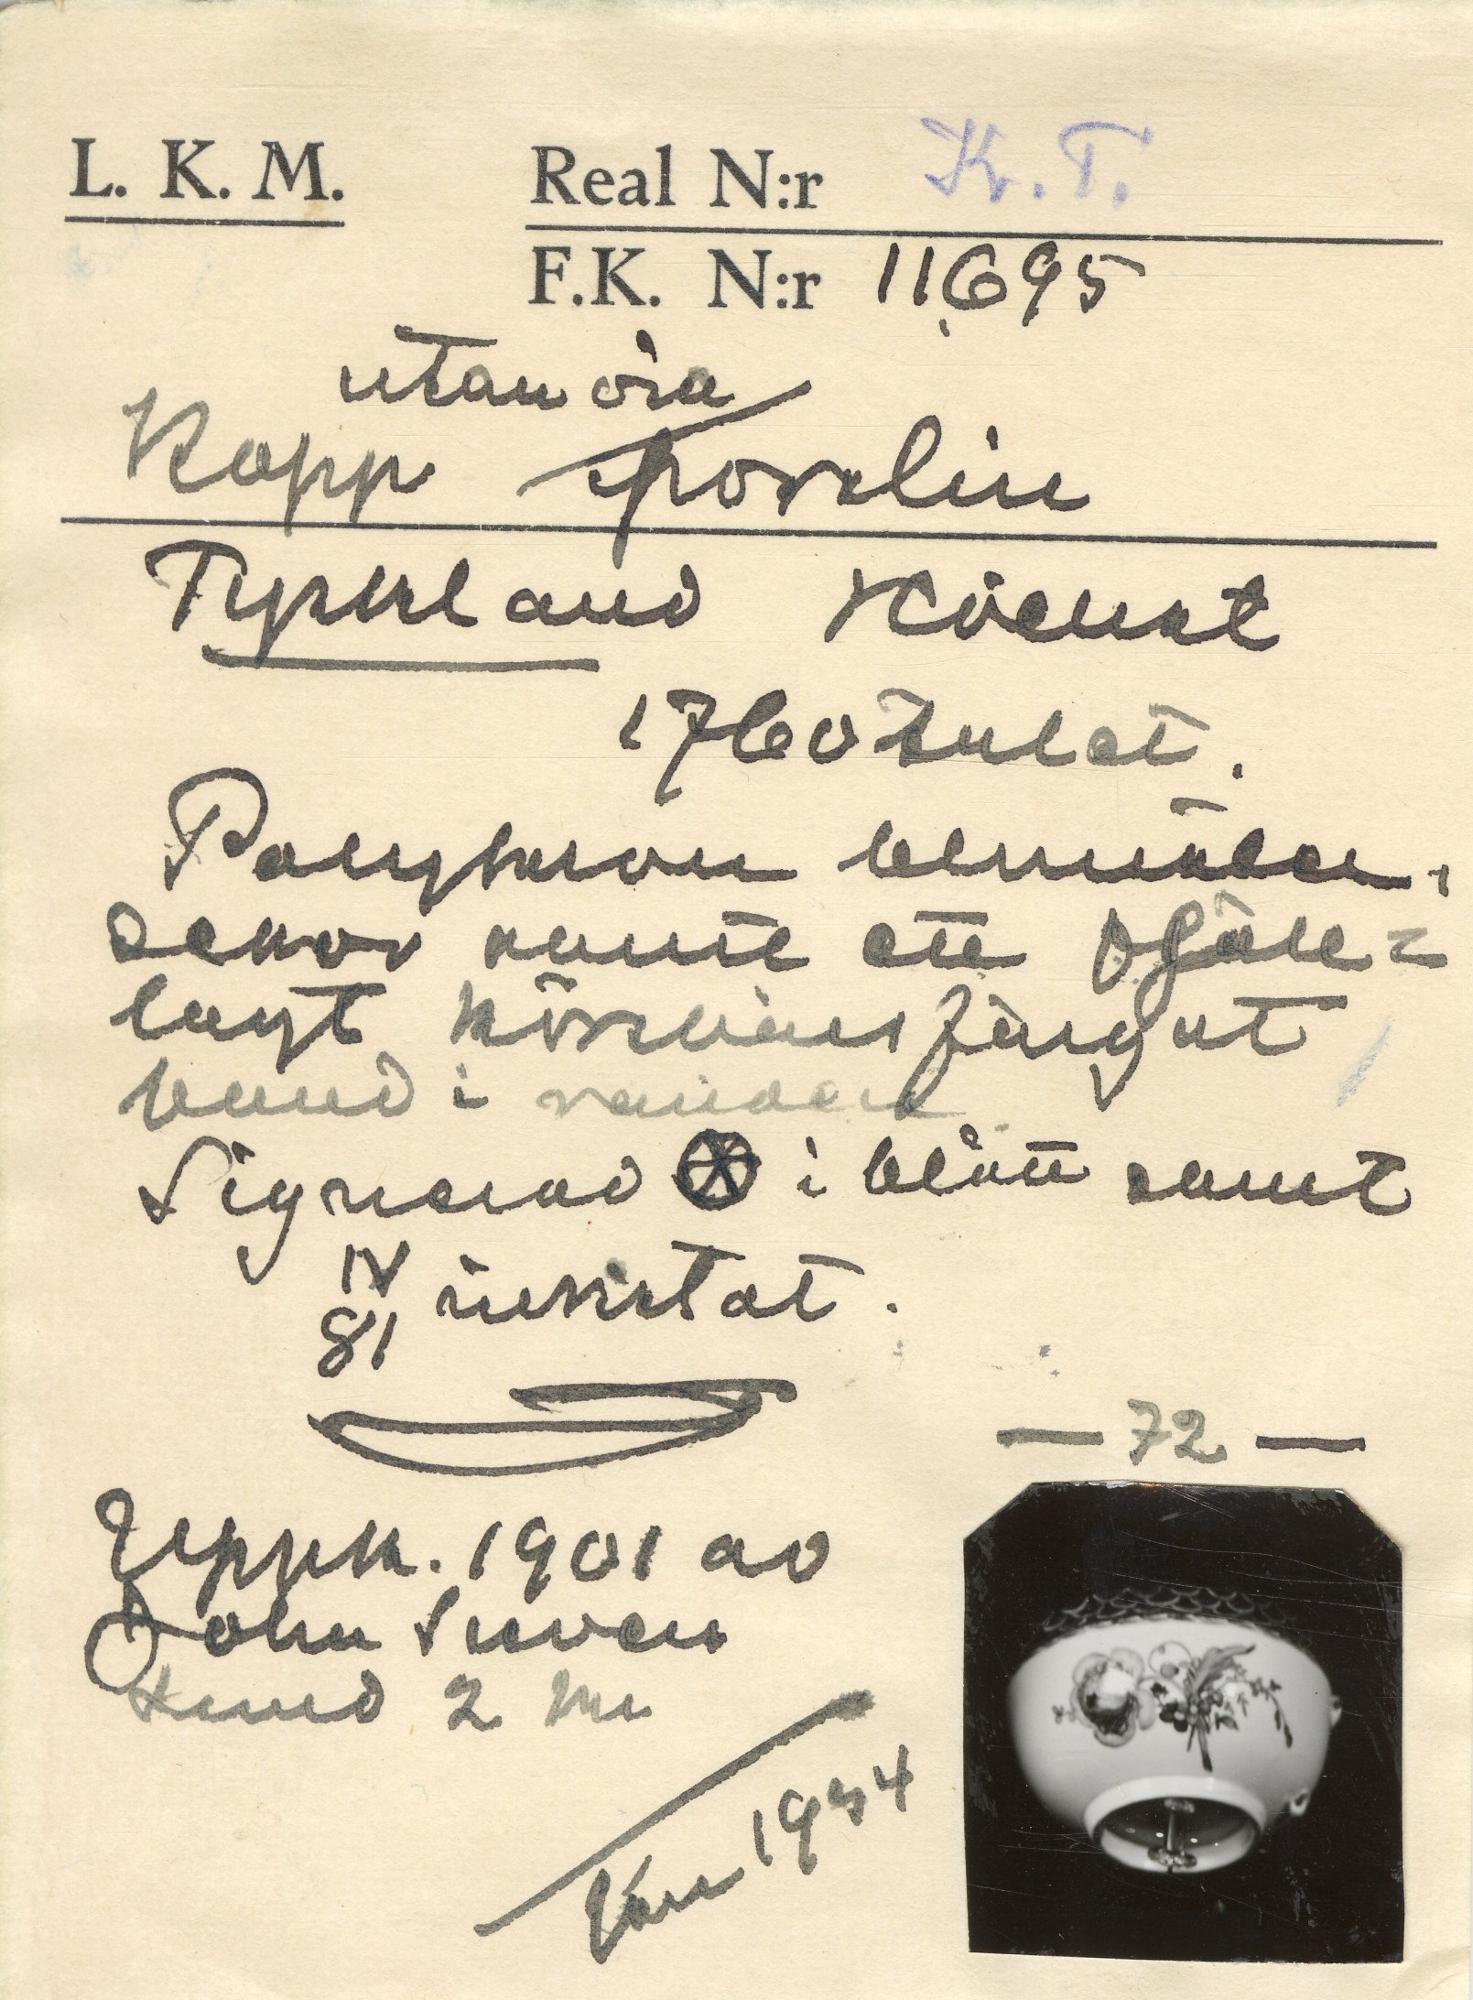 L. K. M. Real N:r K. T.
F.K. N:r 11695
utan öra
Kopp porslin
Tyskland Höchst
1760 talet.
Polykrom blomdekor
samt ett fjäll=
lagt körsbärsfärgat
band i randen
Signerad i blått samt
IV
81 inristat.
— 72 —
Uppk. 1901 av
John Sieven
sund 2
1954